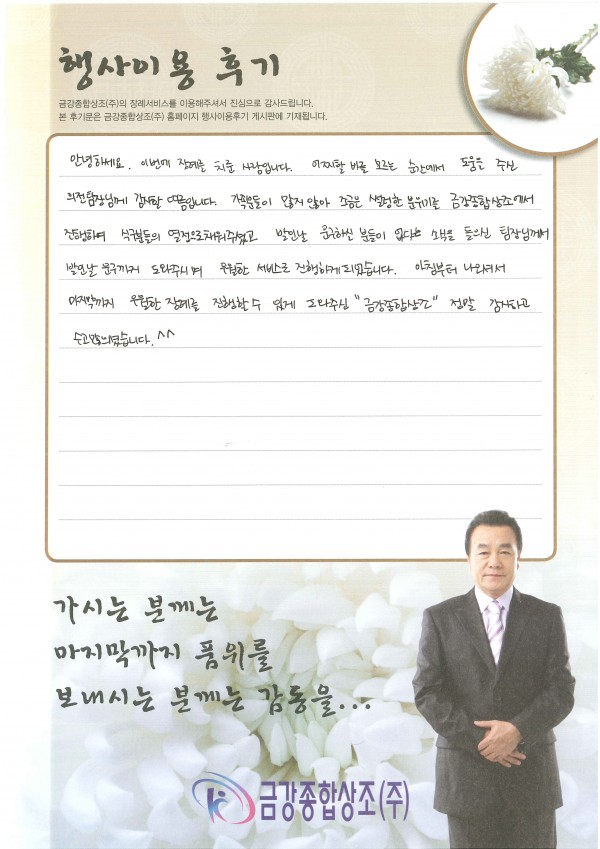 행사이용 후기
금강종합상조(주)의 장례서비스를 이용해주셔서 진심으로 감사드립니다.
본 후기문은 금강종합상조(주) 홈페이지 행사이용후기 게시판에 기재됩니다.
안녕하세요. 이번에 장례를 치룬 사람입니다. 어찌할 바를 모르는 순간에서 도움을 주신
의전팀장님께 감사할 따름입니다. 가족분들이 많지 않아 조금은 썰렁한 분위기를 금강종합상조에서
진행하며 식구분들의 열정으로 채워주셨고 발인날 운구하실 분들이 없다는 소식을 들으신 팀장님께서
발인날 운구까지 도와주시며 훌륭한 서비스로 진행하게 되었습니다. 아침부터 나와서
마지막까지 훌륭한 장례를 진행할 수 있게 도와주신 "금강종합상조" 정말 감사하고
수고많으셨습니다. ^^
가시는 분께는
마지막까지 품위를
보내시는 분께는 감동을...
금강종합상조(주)